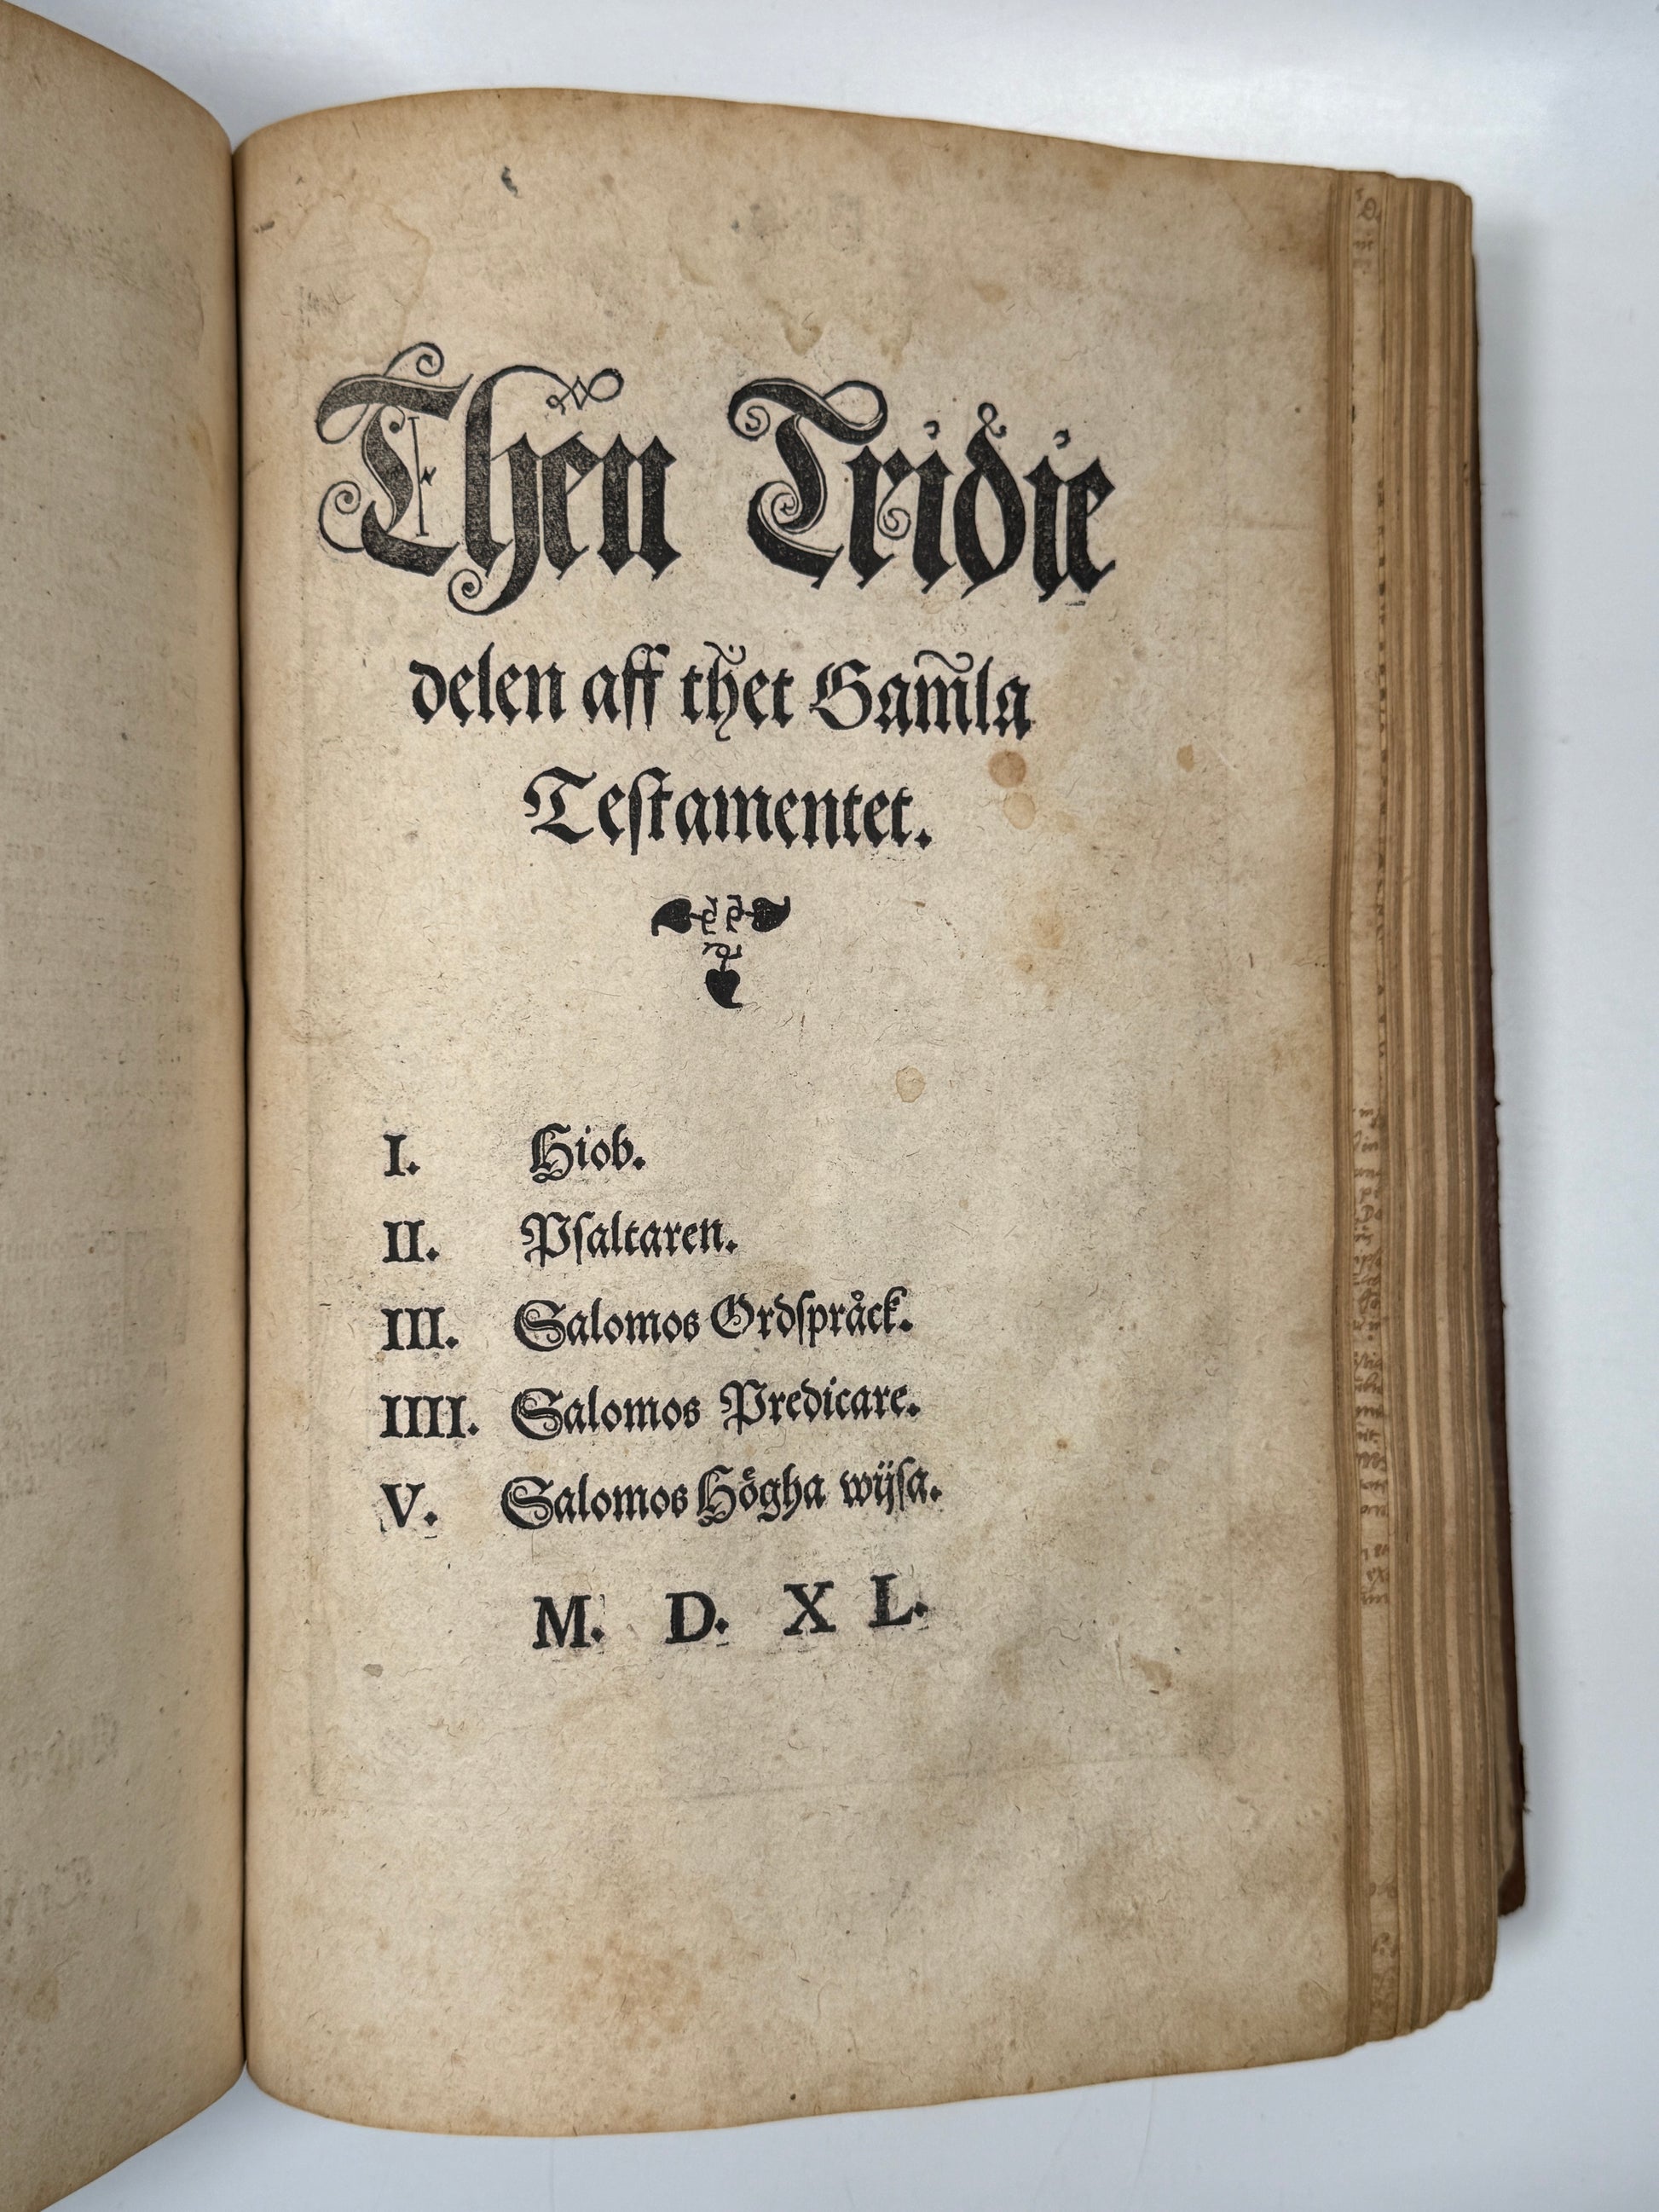 Then Tridie
delen aff thet Gam̃la
Teſtamentet.
I. Hiob.
II. Pſaltaren.
III. Salomos Ordſpråck.
IIII. Salomos Predicare.
V. Salomos Högha wijſa.
M. D. X L.